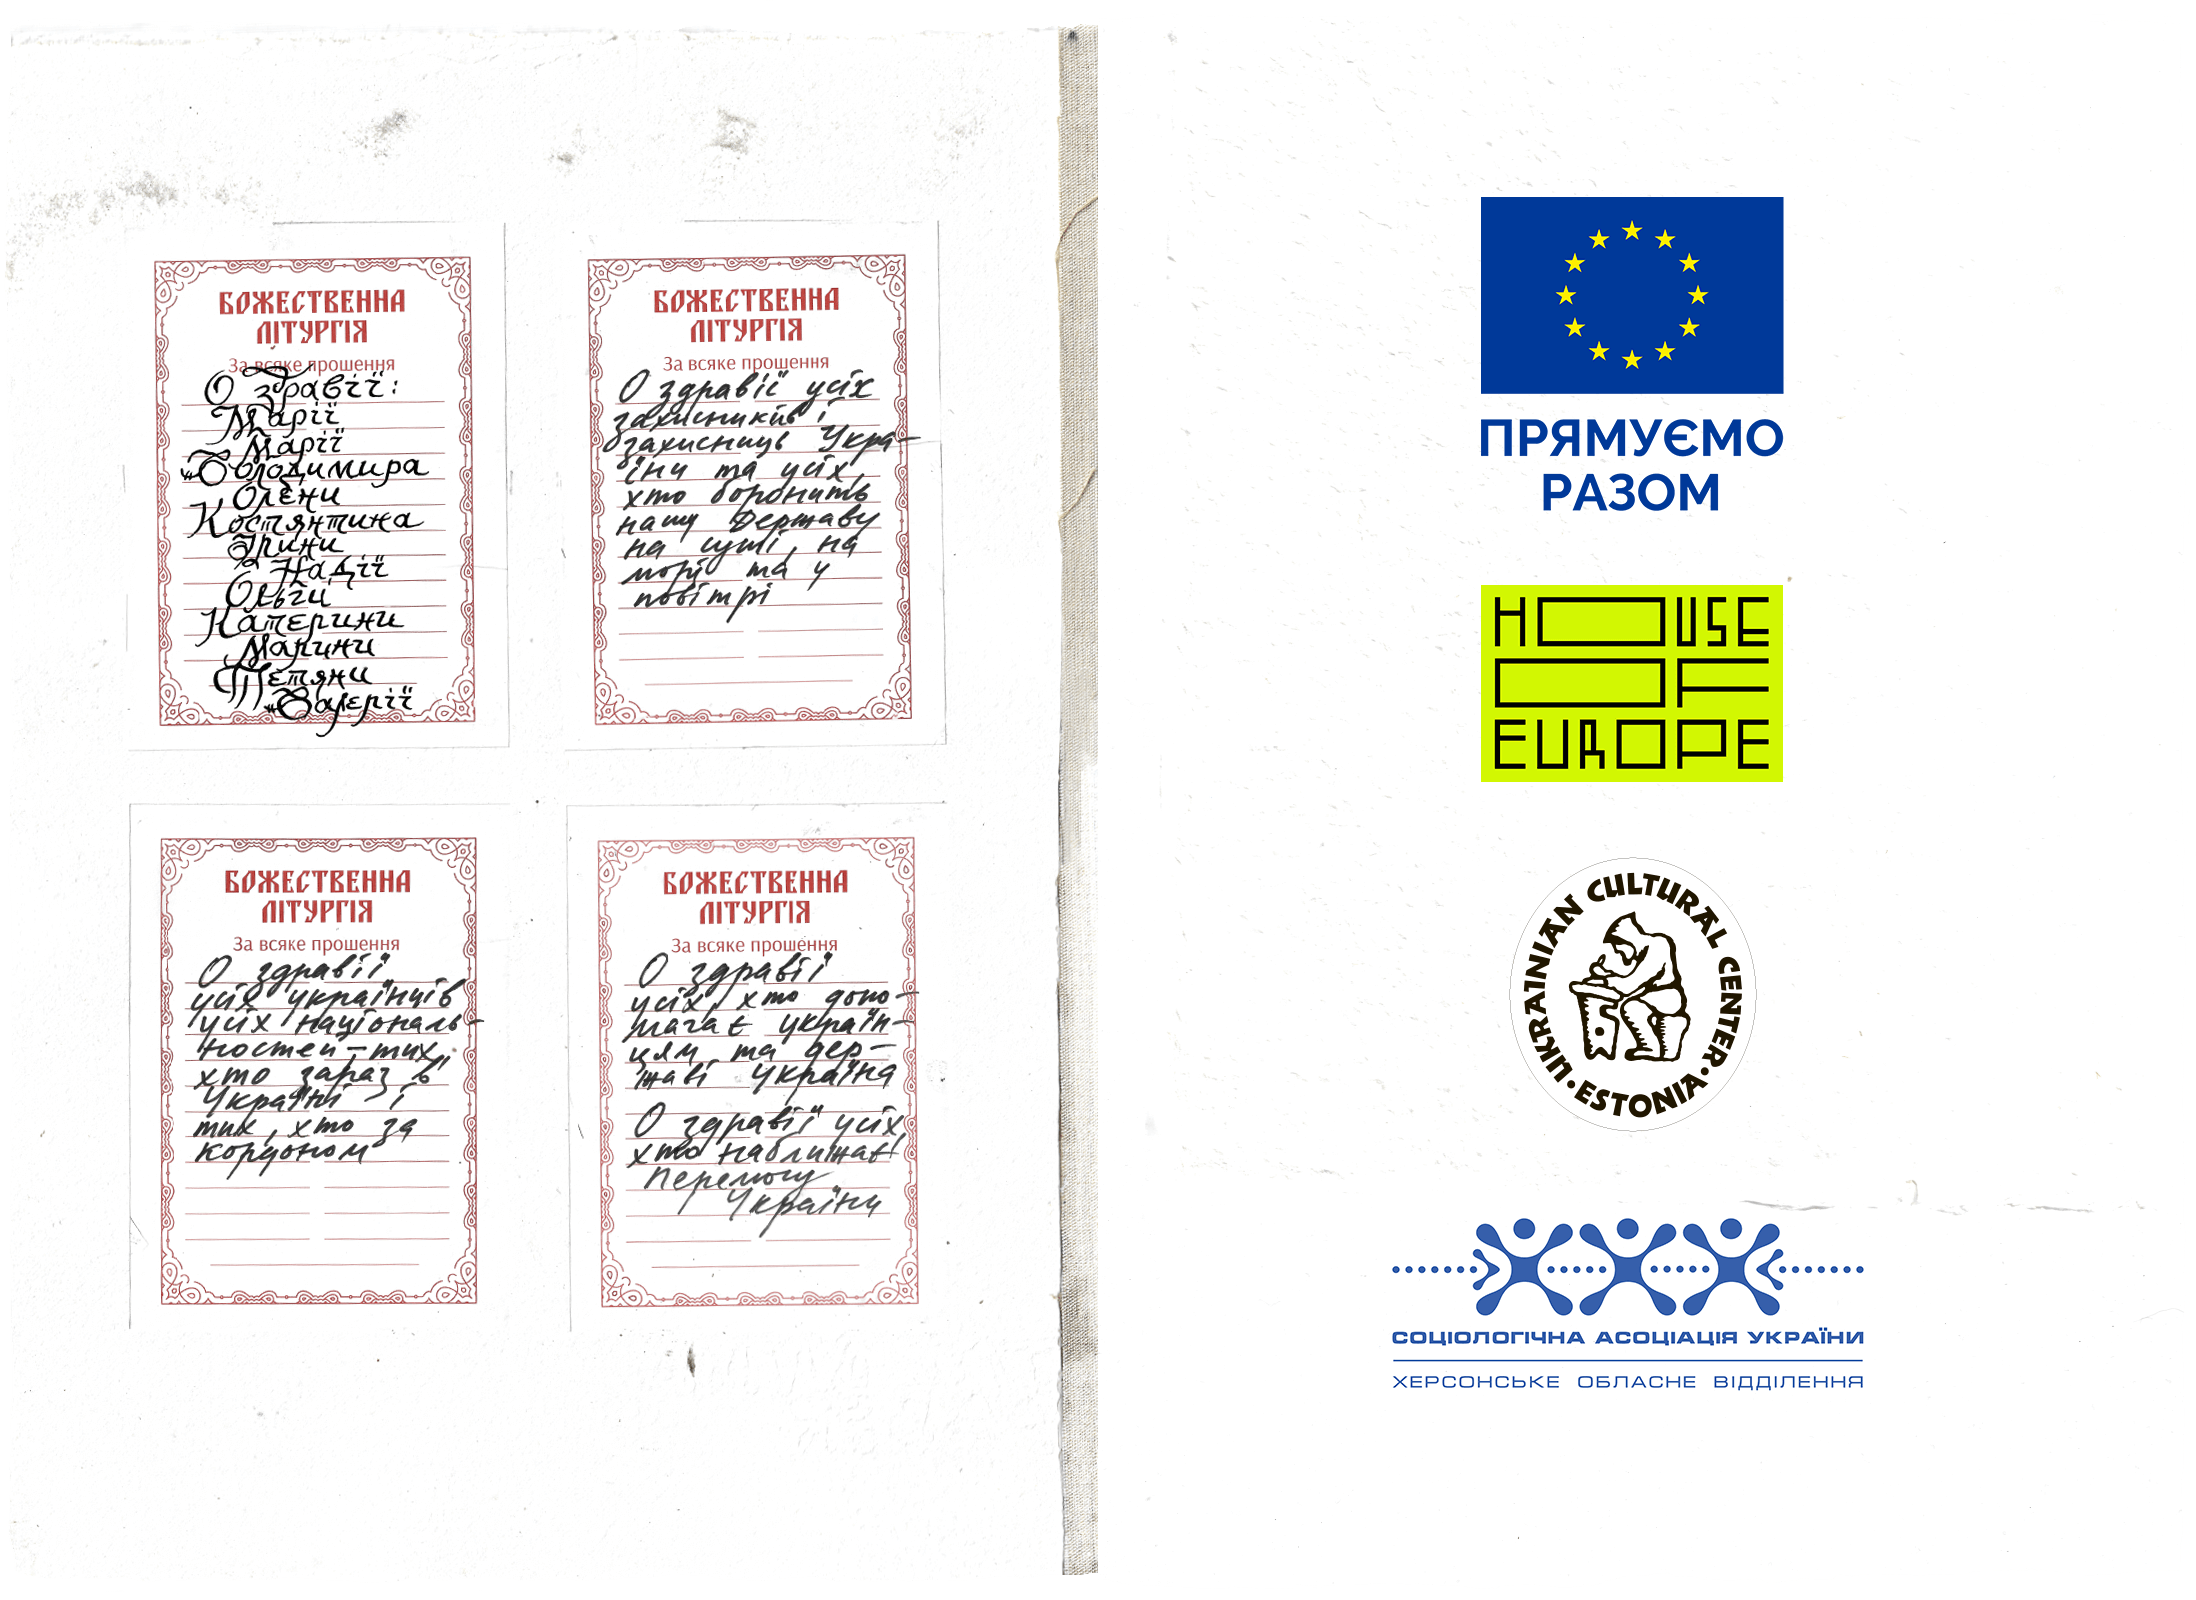 БОЖЕСТВЕННА
ЛІТУРГІЯ
За всяке прошення
О здравії:
Марії
Марії
Володимира
Олени
Костянтина
Ірини
Надії
Ольги
Катерини
Марини
Тетяни
Валерії
БОЖЕСТВЕННА
ЛІТУРГІЯ
За всяке прошення
О здравії усіх
захисників і
захисниць Укра-
їни та усіх,
хто боронить
нашу Державу
на суші, на
морі та у
повітрі
БОЖЕСТВЕННА
ЛІТУРГІЯ
За всяке прошення
О здравії
усіх українців
усіх національ-
ностей – тих,
хто зараз в
Україні і
тих, хто за
кордоном
БОЖЕСТВЕННА
ЛІТУРГІЯ
За всяке прошення
О здравії
усіх, хто допо-
магає україн-
цям та дер-
жаві Україна
О здравії усіх
хто наближає
Перемогу
України
ПРЯМУЄМО
РАЗОМ
HOUSE
OF
EUROPE
UKRAINIAN CULTURAL CENTER • ESTONIA •
СОЦІОЛОГІЧНА АСОЦІАЦІЯ УКРАЇНИ
ХЕРСОНСЬКЕ ОБЛАСНЕ ВІДДІЛЕННЯ